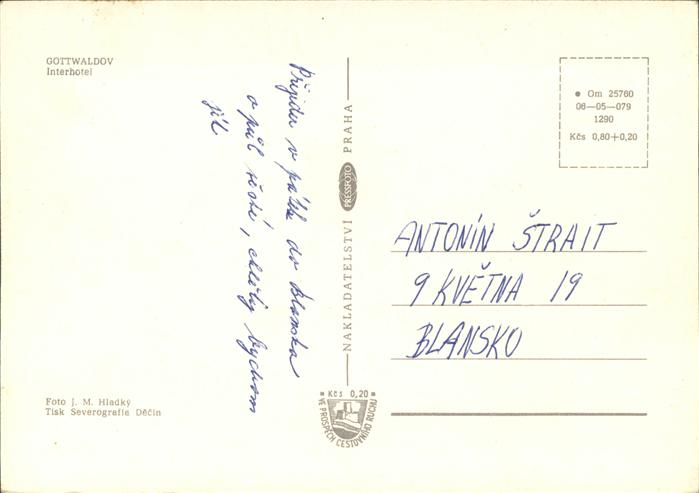 GOTTWALDOV
Interhotel
Přijedu v pátek do Blanska
o půl šesté, chtěly bychom
jít
NAKLADATELSTVÍ PRESSFOTO PRAHA
Om 25760
06—05—079
1290
Kčs 0,80+0,20
ANTONÍN ŠTRAIT
9 KVĚTNA 19
BLANSKO
Kčs 0,20
VE PROSPĚCH CESTOVNÍHO RUCHU
Foto J. M. Hladký
Tisk Severografia Děčín